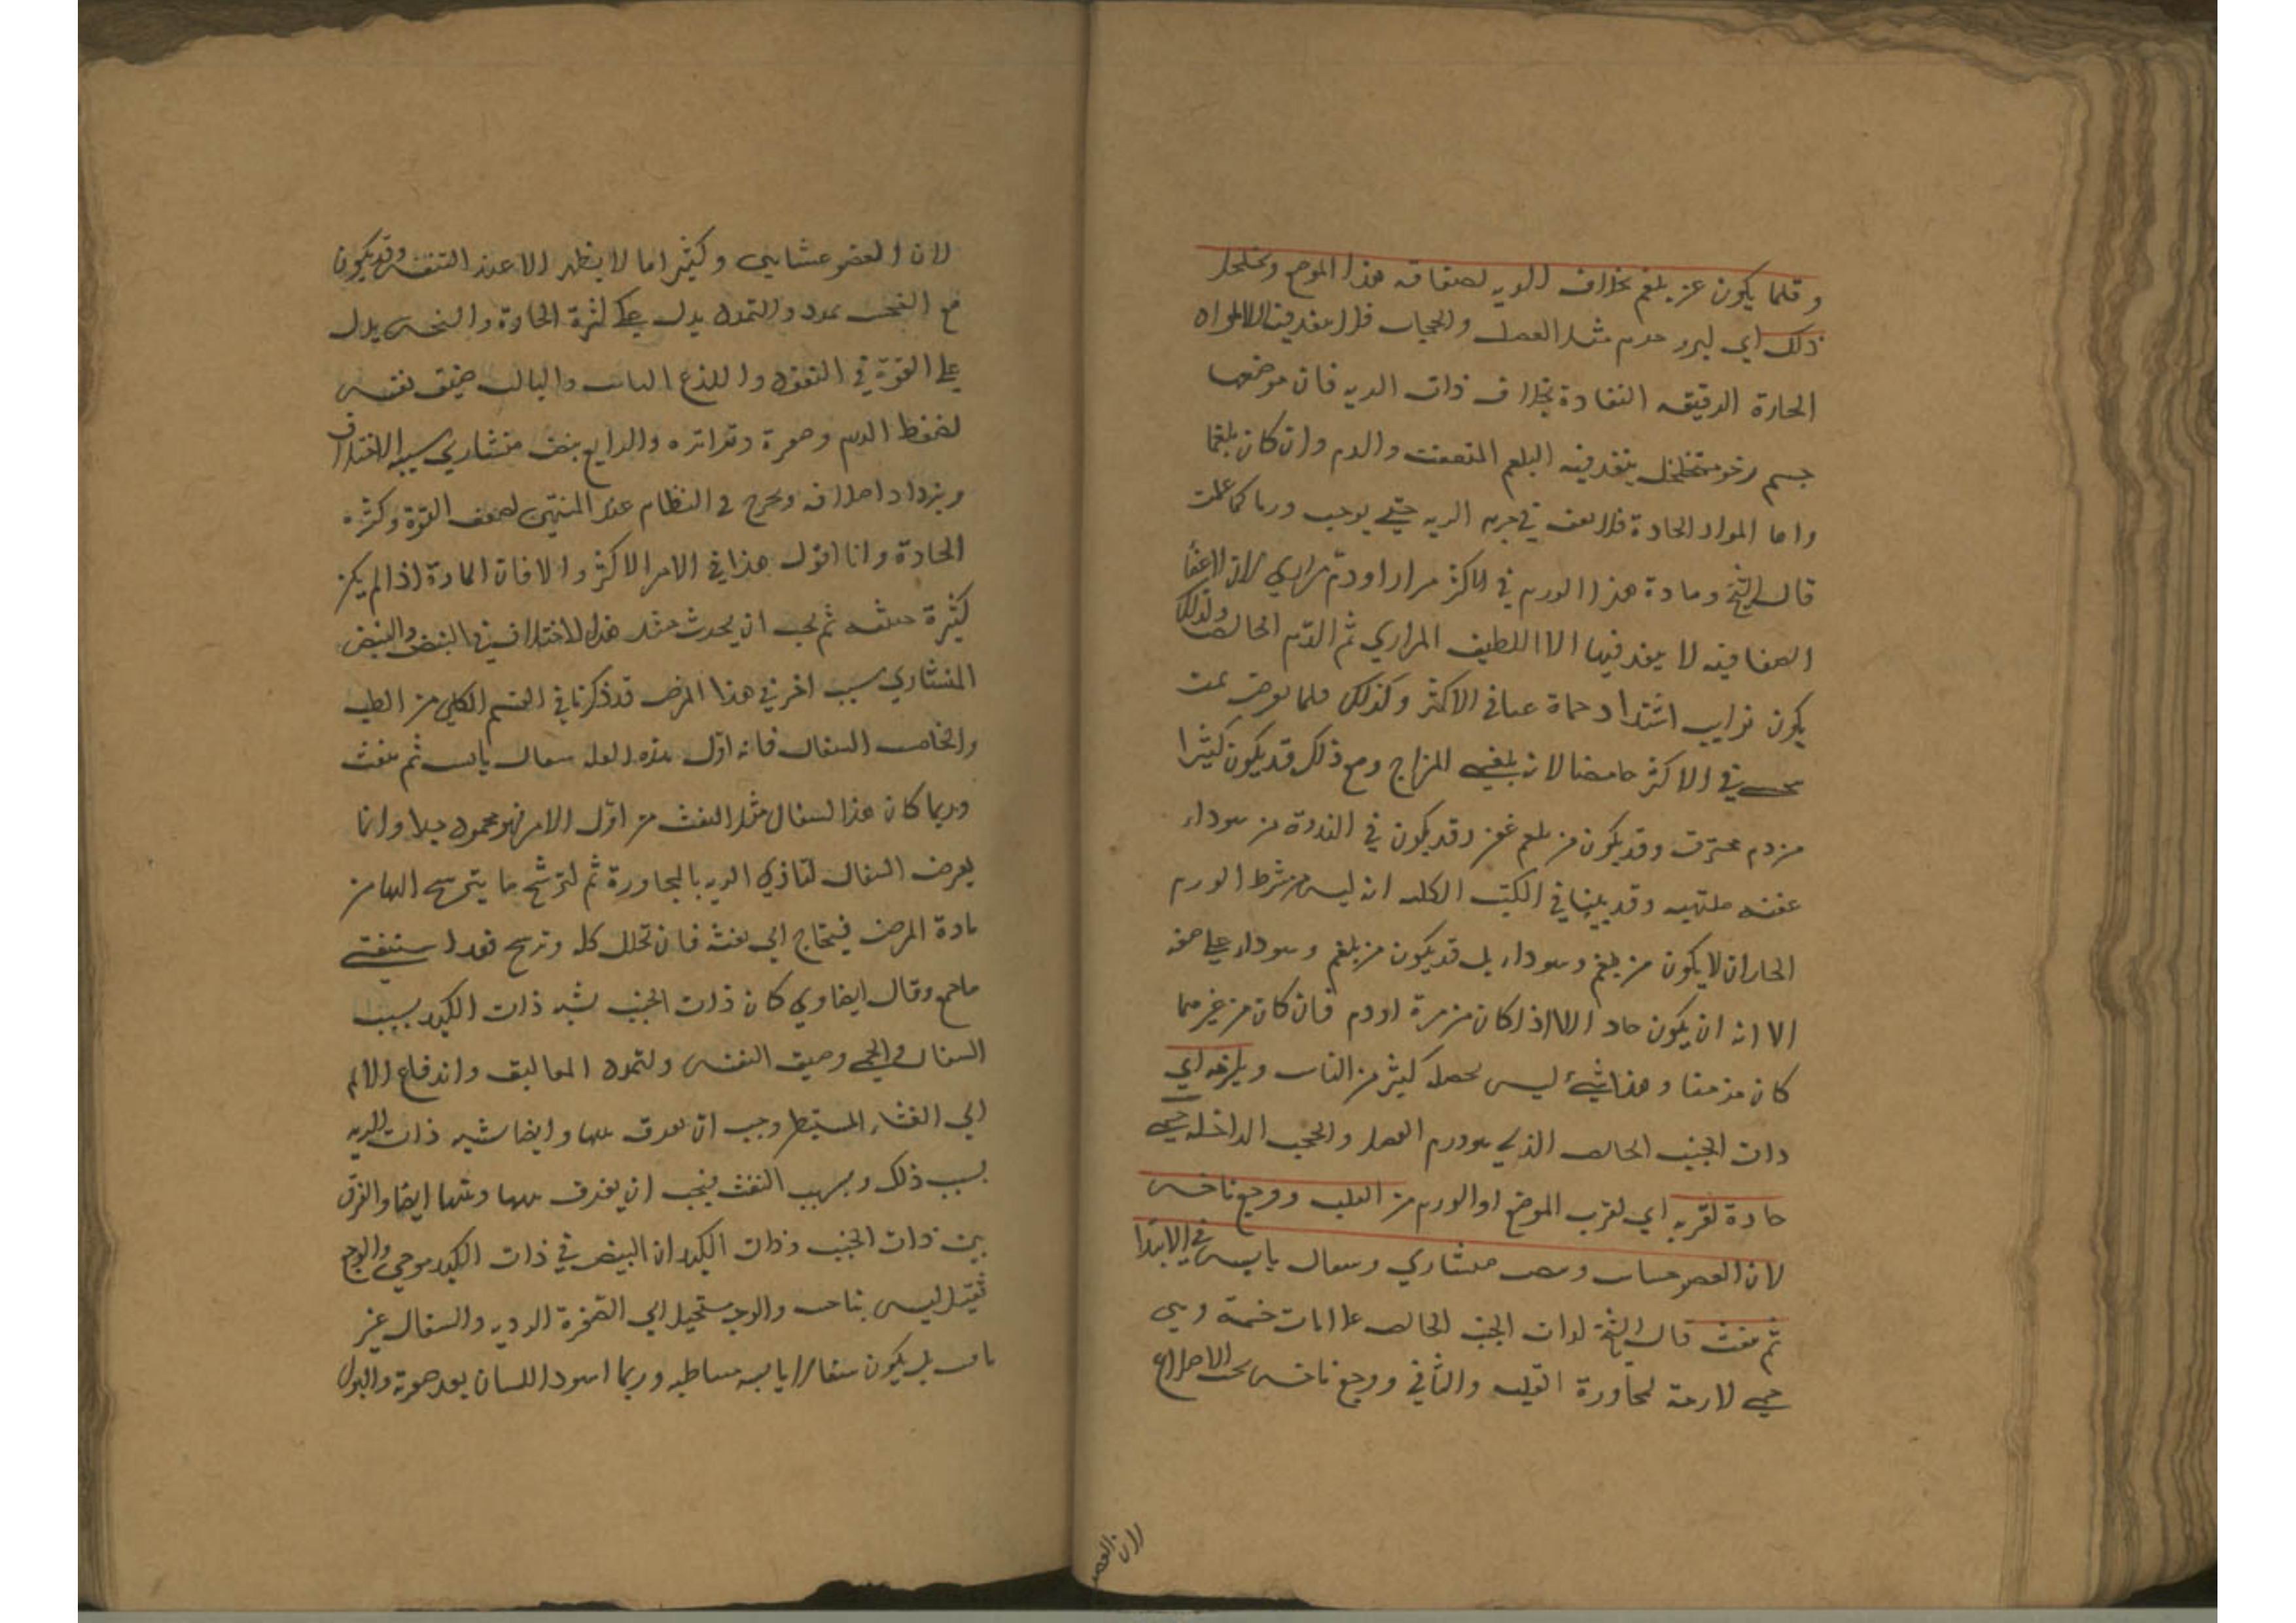 وقلما يكون عن بلغم بخلاف الريه لصفاقه هذا الموضع وتخلخل
ذلك اي لبرد جرم مثل العضل والحجاب فلا ينفذ فيها الا المواد
الحارة الرقيقه النفاذة بخلاف ذات الريه فان موضعها
جسم رخو متخلخل ينفذ فيه البلغم المتعفن والدم وان كان بلغما
واما المواد الحادة فلا تقف في جرم الريه حتي يوجب ورما كما علمت
قال الشيخ ومادة هذا الورم في الاكثر مرار او دم مراري لان الاعضا
الصفاقيه لا ينفذ فيها الا اللطيف المراري ثم الدم الخالص ولذلك
يكون نوايب اشتداد حماه غبا في الاكثر وكذلك قلما يعرض لمن
في الاكثر حامضا لانه بلغمي المزاج ومع ذلك قد يكون كثيرا
من دم محترق وقد يكون من بلغم عفن وقد يكون في الندرة من سوداء
عفنه ملتهبه وقد بينا في الكتب الكليه انه ليس من شرط الورم
الحار ان لا يكون من بلغم وسوداء بل قد يكون من بلغم وسوداء علي صفه
الا انه ان يكون حاد الا اذا كان من مرة او دم فان كان من غيرهما
كان مزمنا وهذا شيء ليس يحصله كثير من الناس ويلزمه اي
ذات الجنب الخالص الذي هو ورم العضل والحجب الداخله حمي
حادة لقربه اي لقرب الموضع او الورم من القلب ووجع ناخس
لان العضو حساس ونبض منشاري وسعال يابس في الابتدا
ثم نفث قال الشيخ لذات الجنب الخالص علامات خمسة وهي
حمي لازمة لمجاورة القلب والثاني ووجع ناخس تحت الاضلاع
لان العضو
لان العضو غشايي وكثيرا ما لا يظهر الا عند التنفس وقد يكون
مع النخس تمدد والتمدد يدل علي كثرة المادة والنخس يدل
علي القوة في النفوذ واللذع الثالث ضيق نفس
لضغط الورم وصغره وتواتره والرابع نبض منشاري سببه الاختلاف
ويزداد اختلافه ويخرج عن النظام عند المنتهي لضعف القوة وكثرة
المادة وانا اقول هذا في الامر الاكثر والا فان المادة اذا لم يكن
كثيرة ثم يجب ان يحدث مثل هذا الاختلاف في النبض والنبض
المنشاري سبب اخر في هذا المرض قد ذكرنا في القسم الكلي من الطب
والخامس السعال فانه اول هذه العلة سعال يابس ثم ينفث
وربما كان هذا السعال مثل النفث من اول الامر فهو محمود جدا وانما
يعرض السعال لتاذي الريه بالمجاورة ثم لترشح ما يترشح اليها من
مادة المرض فيحتاج الي نفثه فان تحلل كله وترشح فقد استنقي
ما جمع وقال ايضا ولما كان ذات الجنب يشبه ذات الكبد بسبب
السعال والحمي وضيق النفس ولتمدد المعاليق واندفاع الالم
الي الغشاء المستبطن وجب ان يفرق بينها وايضا يشبه ذات الريه
بسبب ذلك وبسبب النفث فيجب ان يفرق بينها وبينها ايضا والفرق
بين ذات الجنب وذات الكبد ان النبض في ذات الكبد موجي والوجع
ثقيل ليس بناخس والوجه مستحيل الي الصفرة الرديه والسعال غير
نافث بل يكون سعالا يابسه متباطيه وربما اسود اللسان بعد صفرته والبول